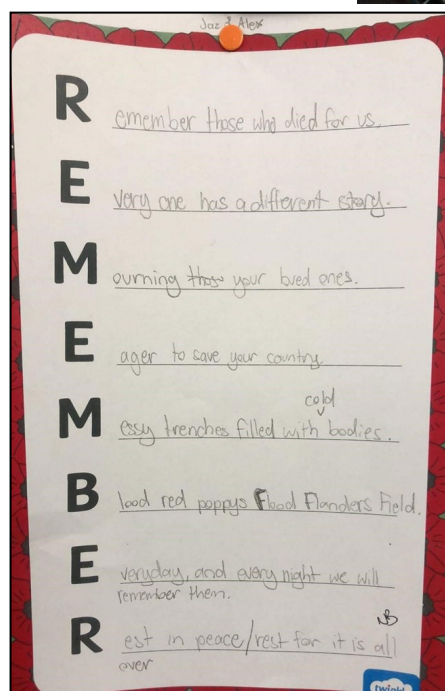 Jaz & Alex
Remember those who died for us.
Every one has a different story.
Mourning those your loved ones.
Eager to save your country.
cold
Messy trenches filled with bodies.
Blood red poppys Flood Flanders Field.
Everyday, and every night we will
remember them.
NB
Rest in peace/rest for it is all
over
twinkl